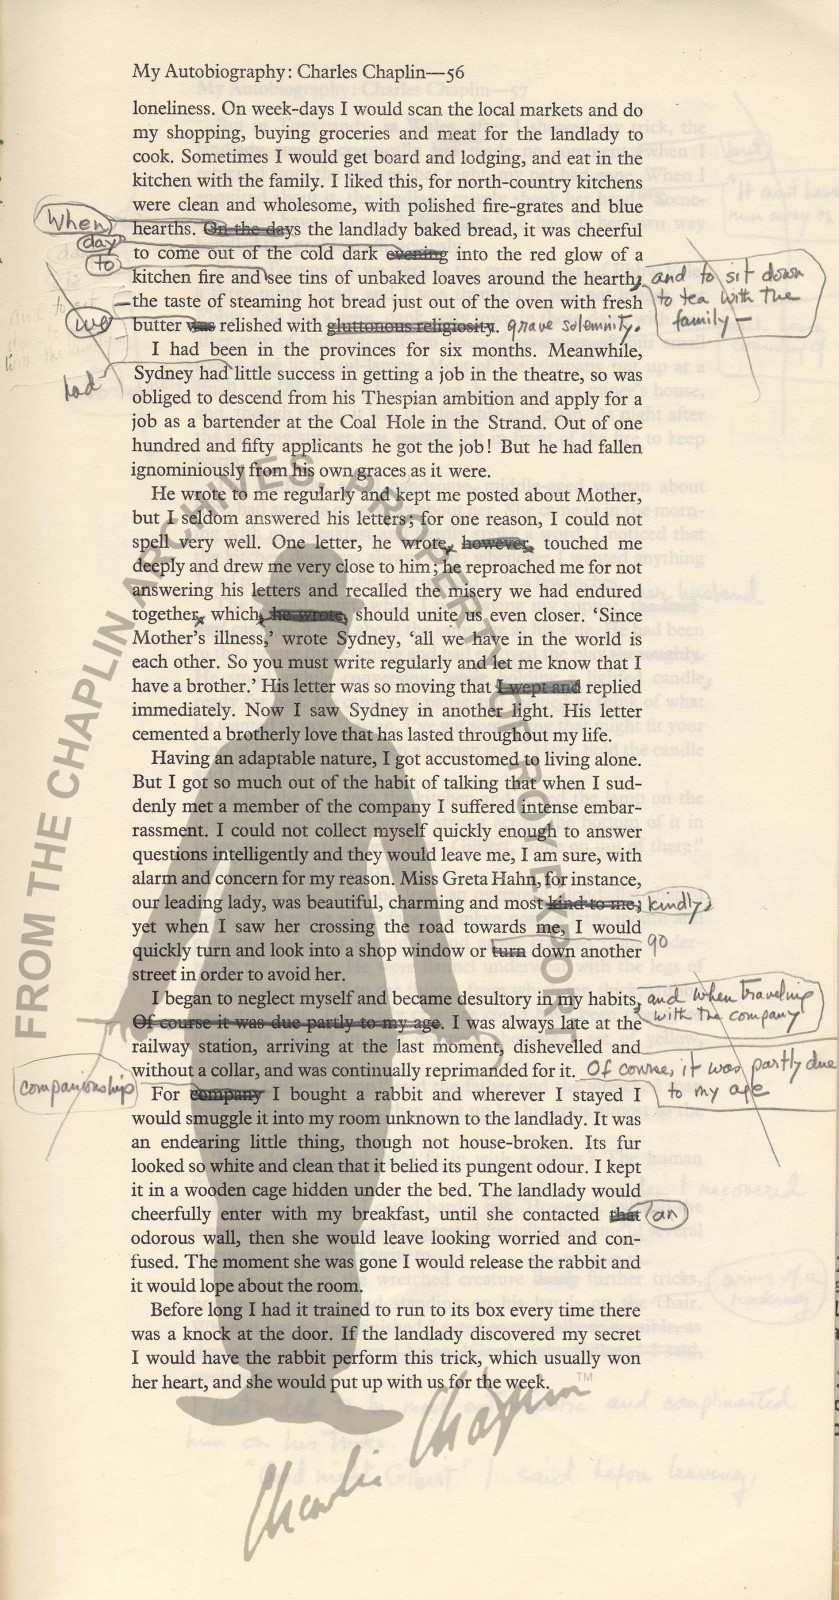 My Autobiography: Charles Chaplin—56
loneliness. On week-days I would scan the local markets and do
my shopping, buying groceries and meat for the landlady to
cook. Sometimes I would get board and lodging, and eat in the
kitchen with the family. I liked this, for north-country kitchens
were clean and wholesome, with polished fire-grates and blue
When
hearths. On the days the landlady baked bread, it was cheerful
day
to come out of the cold dark evening into the red glow of a
to
kitchen fire and see tins of unbaked loaves around the hearth, and to sit down
to tea with the
family—
—the taste of steaming hot bread just out of the oven with fresh
we
butter was relished with gluttonous religiosity. grave solemnity.
I had been in the provinces for six months. Meanwhile,
had
Sydney had little success in getting a job in the theatre, so was
obliged to descend from his Thespian ambition and apply for a
job as a bartender at the Coal Hole in the Strand. Out of one
hundred and fifty applicants he got the job! But he had fallen
ignominiously from his own graces as it were.
He wrote to me regularly and kept me posted about Mother,
but I seldom answered his letters; for one reason, I could not
spell very well. One letter, he wrote, however, touched me
deeply and drew me very close to him; he reproached me for not
answering his letters and recalled the misery we had endured
together, which, he wrote, should unite us even closer. ‘Since
Mother’s illness,’ wrote Sydney, ‘all we have in the world is
each other. So you must write regularly and let me know that I
have a brother.’ His letter was so moving that I wept and replied
immediately. Now I saw Sydney in another light. His letter
cemented a brotherly love that has lasted throughout my life.
Having an adaptable nature, I got accustomed to living alone.
But I got so much out of the habit of talking that when I sud-
denly met a member of the company I suffered intense embar-
rassment. I could not collect myself quickly enough to answer
questions intelligently and they would leave me, I am sure, with
alarm and concern for my reason. Miss Greta Hahn, for instance,
our leading lady, was beautiful, charming and most kind to me; kindly;
yet when I saw her crossing the road towards me, I would
quickly turn and look into a shop window or turn down another go
street in order to avoid her.
I began to neglect myself and became desultory in my habits, and when traveling
with the company
Of course it was due partly to my age. I was always late at the
railway station, arriving at the last moment, dishevelled and
without a collar, and was continually reprimanded for it. Of course, it was partly due
to my age
companionship
For company I bought a rabbit and wherever I stayed I
would smuggle it into my room unknown to the landlady. It was
an endearing little thing, though not house-broken. Its fur
looked so white and clean that it belied its pungent odour. I kept
it in a wooden cage hidden under the bed. The landlady would
cheerfully enter with my breakfast, until she contacted that an
odorous wall, then she would leave looking worried and con-
fused. The moment she was gone I would release the rabbit and
it would lope about the room.
Before long I had it trained to run to its box every time there
was a knock at the door. If the landlady discovered my secret
I would have the rabbit perform this trick, which usually won
her heart, and she would put up with us for the week.
FROM THE CHAPLIN ARCHIVES, PROPERTY OF ROY EXPORT
Charlie Chaplin TM